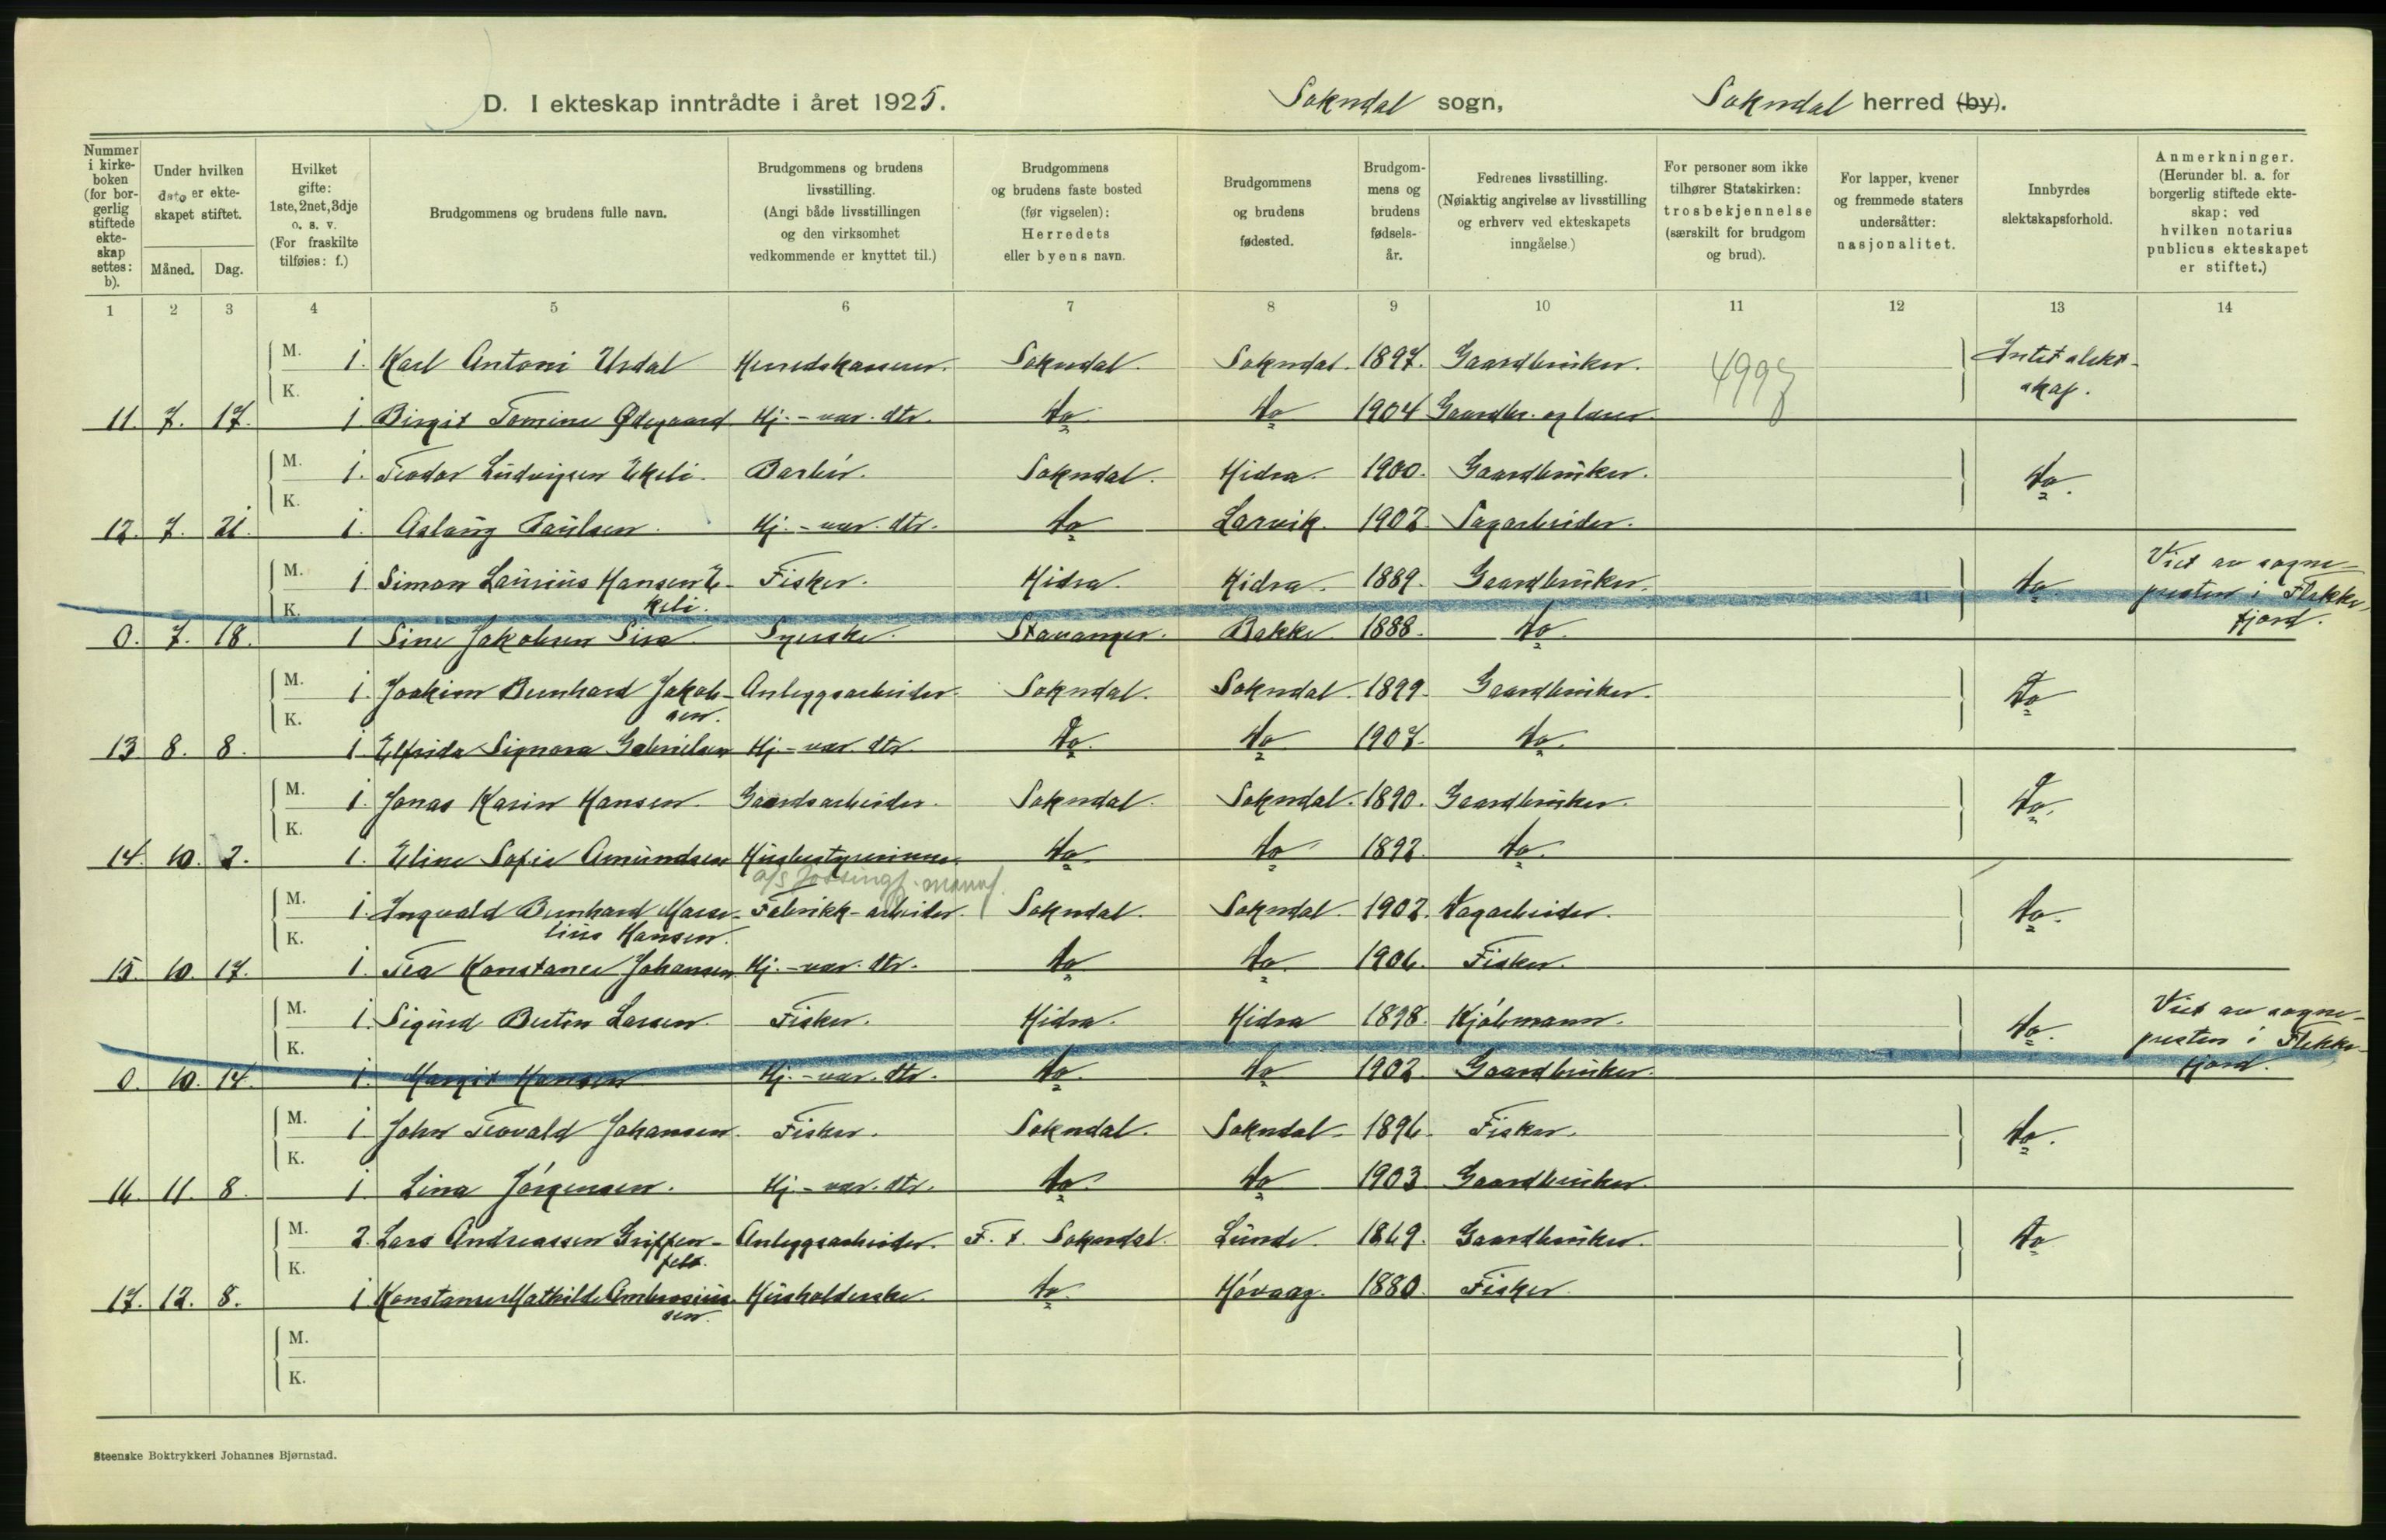 D. I ekteskap inntrådte i året 1925. Sokndal sogn, Sokndal herred (by).
Nummer i kirke-boken (for bor-gerlig stiftede ekte-skap settes: b).
Under hvilken dato er ekte-skapet stiftet.
Måned. Dag.
Hvilket gifte: 1ste, 2net, 3dje o. s. v. (For fraskilte tilføies: f.)
Brudgommens og brudens fulle navn.
Brudgommens og brudens livsstilling. (Angi både livsstillingen og den virksomhet vedkommende er knyttet til.)
Brudgommens og brudens faste bosted (før vigselen): Herredets eller byens navn.
Brudgommens og brudens fødested.
Brudgom-mens og brudens fødsels-år.
Fedrenes livsstilling. (Nøiaktig angivelse av livsstilling og erhverv ved ekteskapets inngåelse.)
For personer som ikke tilhører Statskirken: trosbekjennelse (særskilt for brudgom og brud).
For lapper, kvener og fremmede staters undersåtter: nasjonalitet.
Innbyrdes slektskapsforhold.
Anmerkninger. (Herunder bl. a. for borgerlig stiftede ekte-skap; ved hvilken notarius publicus ekteskapet er stiftet.)
1 2 3 4 5 6 7 8 9 10 11 12 13 14
M. 1. Karl Antoni Urdal Herredskasserer. Sokndal. Sokndal. 1897. Gaardbruker. 4998 Intet slekt-
skap.
K.
11. 7. 17. 1 Birgit Tomine Ødegaard Hj.-vær. dtr. do do 1904 Gaardbr. og lærer.
M. 1. Teodor Ludvigsen Ekeli. Barber. Sokndal. Hidra. 1900. Gaardbruker. do.
K.
12. 7. 21. 1. Aslaug Paulsen. Hj.-vær. dtr. do Larvik. 1902. Sagarbeider.
M. 1 Simon Laurius Hansen E- Fisker. Hidra. Hidra. 1889. Gaardbruker. do Viet av sogne-
K. keli. presten i Flekke-
0. 7. 18. 1 Sine Jakobsen Sira Syerske. Stavanger. Bakke. 1888. do. fjord.
M. 1. Joakim Bernhard Jakob- Anleggsarbeider. Sokndal. Sokndal. 1899. Gaardbruker. do
K. sen.
13 8. 8. 1. Elfrida Signora Gabrielsen Hj.-vær. dtr. do. do 1907. do.
M. 1. Jonas Karin Hansen. Gaardsarbeider. Sokndal. Sokndal. 1890. Gaardbruker. do.
K.
14. 10. 2. 1. Eline Sofie Amundsen Husbestyrerinne. do do 1892. do.
a/s Jøssingf. manuf.
M. 1. Ingvald Bernhard Marse- Fabrikk-arbeider. Sokndal. Sokndal. 1902. Dagarbeider. do.
K. lius Hansen.
15. 10. 17. 1. Tea Konstance Johansen Hj.-vær. dtr. do do. 1906. Fisker.
M. 1. Sigurd Bertin Larsen. Fisker. Hidra. Hidra 1898. Kjøbmann. do. Viet av sogne-
K. presten i Flekke-
0. 10. 14. 1. Margit Hansen Hj.-vær. dtr. do. do 1902. Gaardbruker. fjord.
M. 1 John Teovald Johansen. Fisker. Sokndal. Sokndal. 1896. Fisker. do.
K.
16 11. 8. 1. Lina Jørgensen. Hj.-vær. dtr. do. do 1903 Gaardbruker.
M. 2. Lars Andreassen Griffen- Anleggsarbeider. F. t. Sokndal. Lunde. 1869. Gaardbruker. do
K. feld.
17. 12. 8. 1 Konstanse Mathilde Ambrosius- Husholderske. do. Høvaag. 1880. Fisker.
sen.
M.
K.
Steenske Boktrykkeri Johannes Bjørnstad.